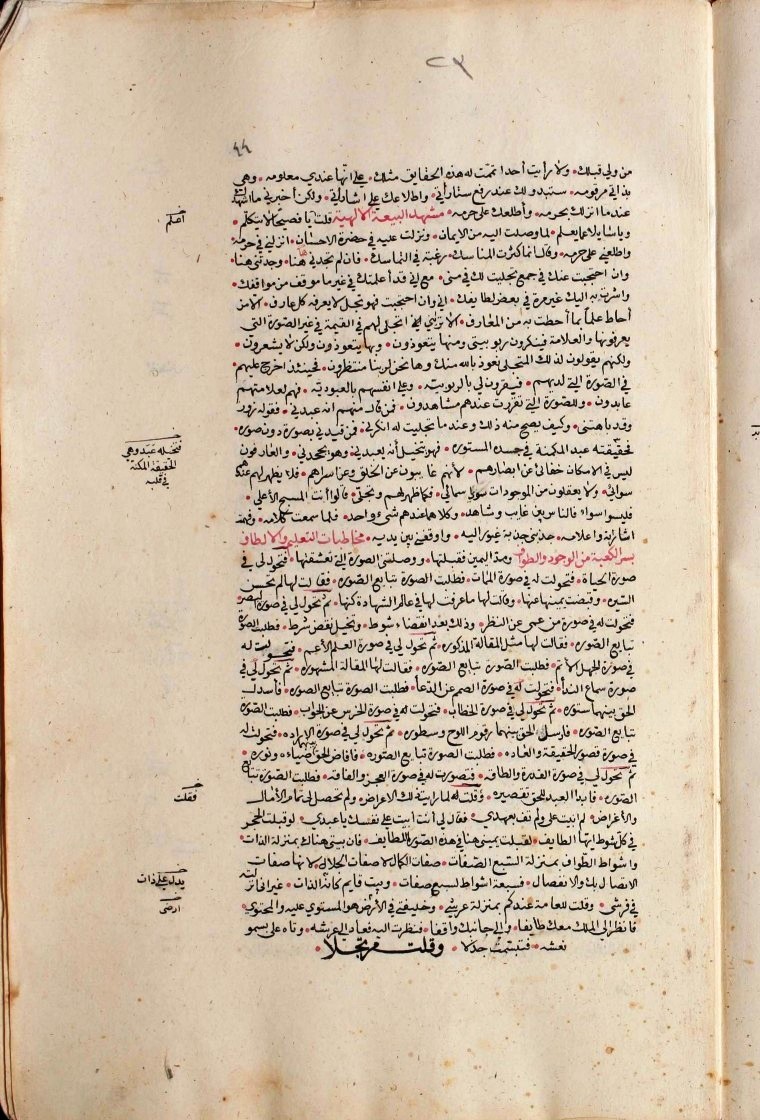 ٢٣
٤٤
من ولي قبلك ۰ ولا رأيت أحدا تمت له هذه الحقايق مثلك ۰ على انها عندي معلومه ۰ وهي
بذاتي مرقومه ۰ ستبدو لك عند رفع ستاراتي ۰ واطلاعك على اشاراتي ۰ ولكن أخبرني ما اشهدك
عند ما انزلك بحرمه ۰ وأطلعك على حرمه ۰ مشهد البيعة الالهية قلت يا فصيحا لا يتكلم ۰
ويا سايلا عما يعلم ۰ لما وصلت اليه من الايمان ۰ ونزلت عليه في حضرة الاحسان ۰ انزلني في حرمه
واطلعني على حرمه ۰ وقال انما كثرت المناسك ۰ رغبة في التماسك ۰ فان لم تجدني هنا ۰ وجدتني هنا ۰
وان احتجبت عنك في جمع تجليت لك في منى ۰ مع اني قد أعلمتك في غير ما موقف من مواقفك ۰
واشرت به اليك غير مرة في بعض لطايفك ۰ اني وان احتجبت فهو تجل لا يعرفه كل عارف ۰ الا من
أحاط علما بما أحطت به من المعارف ۰ الا تراني اتجلى لهم في القيمة في غير الصورة التي
يعرفونها والعلامة فينكرون ربوبيتي ومنها يتعوذون ۰ وبها يتعوذون ولكن لا يشعرون ۰
ولكنهم يقولون لذلك المتجلى نعوذ بالله منك وها نحن لربنا منتظرون ۰ فحينئذ اخرج عليهم
في الصورة التي لديهم ۰ فيقرون لي بالربوبيه ۰ وعلى انفسهم بالعبوديه ۰ فهم لعلامتهم
عابدون ۰ وللصورة التي تقررت عندهم مشاهدون ۰ فمن قال منهم انه عبدني ۰ فقوله زور
وقد باهتني ۰ وكيف يصح منه ذلك وعند ما تجليت له انكرني ۰ فمن قيدني بصورة دون صوره
فحقيقته عبد المكنة في جسده المستوره ۰ فهو يتخيل أنه يعبدني ۰ وهو يجحدني ۰ والعارفون
ليس في الامكان خفائي عن ابصارهم ۰ لأنهم غايبون عن الخلق وعن اسرارهم ۰ فلا يظهر لهم عندهم
سوائي ۰ ولا يعقلون من الموجودات سوى سمائي ۰ فكما ظهر لهم وتجلى ۰ قالوا أنت المسبح الأعلى ۰
فليسوا سواء فالناس بين غايب وشاهد ۰ وكلاهما عندهم شيء واحد ۰ فلما سمعت كلامه ۰ وفهمت
اشاراته واعلامه ۰ جذبني جذبة غيور اليه ۰ واوقفني بين يديه ۰ مخاطبات التعليم والالطاف
بسر الكعبة من الوجود والطواف ومد اليمين فقبلتها ۰ ووصلتني الصورة التي تعشقتها ۰ فتحول لي في
صورة الحياة ۰ فتحولت له في صورة المات ۰ فطلبت الصورة تبايع الصوره ۰ فقالت لها لم تحسن
السيره ۰ وقبضت يمينها عنها ۰ وقالت لها ما عرفت لها في عالم الشهادة كنها ۰ ثم تحول لي في صورة البصر
فتحولت له في صورة من عمى عن النظر ۰ وذلك بعد انقضاء شوط ۰ وتخيل نقص شرط ۰ فطلبت الصورة
تبايع الصوره ۰ فقالت لها مثل المقالة المذكوره ۰ ثم تحول لي في صورة العلم الأعم ۰ فتحولت له
في صورة الجهل الأتم ۰ فطلبت الصورة تبايع الصوره ۰ فقالت لها المقالة المشهوره ۰ ثم تحول لي في
صورة سماع الندأ ۰ فتحولت له في صورة الصمم عن الدعأ ۰ فطلبت الصورة تبايع الصوره ۰ فأسدل
الحق بينهما ستوره ۰ ثم تحول لي في صورة الخطاب ۰ فتحولت له في صورة الخرس عن الجواب ۰ فطلبت الصورة
تبايع الصوره ۰ فارسل الحق بينهما رقوم اللوح وسطوره ۰ ثم تحول لي في صورة الاراده ۰ فتحولت له
في صورة قصور الحقيقة والعاده ۰ فطلبت الصورة تبايع الصوره ۰ فافاض الحق بينهما ضياءه ونوره ۰
ثم تحول لي في صورة القدرة والطاقه ۰ فتصورت له في صورة العجز والفاقه ۰ فطلبت الصورة تبايع
الصوره ۰ فابدأ العبد للحق تقصيره ۰ وقلت له لما رايت ذلك الاعراض ۰ ولم تحصل لي تمام الآمال
والأغراض ۰ لم ابيت علي ولم تف بعهدي ۰ فقال لي أنت ابيت على نفسك يا عبدي ۰ لو قبلت الحجر
في كل شوط ايها الطايف ۰ لقبلت يميني هنا في هذه الصور اللطايف ۰ فان بيتي هناك بمنزلة الذات ۰
واشواط الطواف بمنزلة السبع الصفات ۰ صفات الكمال لا صفات الجلال ۰ لانها صفات
الاتصال بك والانفصال ۰ فسبعة اشواط لسبع صفات ۰ وبيت قايم كانه الذات ۰ غير اني انزلته
في فرشي ۰ وقلت للعامة عندكم بمنزلة عرشي ۰ وخليفتي في الأرض هو المستوي عليه والمحتوي ۰
فانظر الى الملك معك طايفا ۰ والى جانبك واقفا ۰ فنظرت اليه فعاد الى عرشه ۰ وتاه علي بسمو
نعشه ۰ فتبسمت جذلا ۰ وقلت مرتجلا ۰
أعلم
فتخيله عبد وهي
الحقيقة المكنة
في قلبه
فقلت
يدل على ذات
ارضى